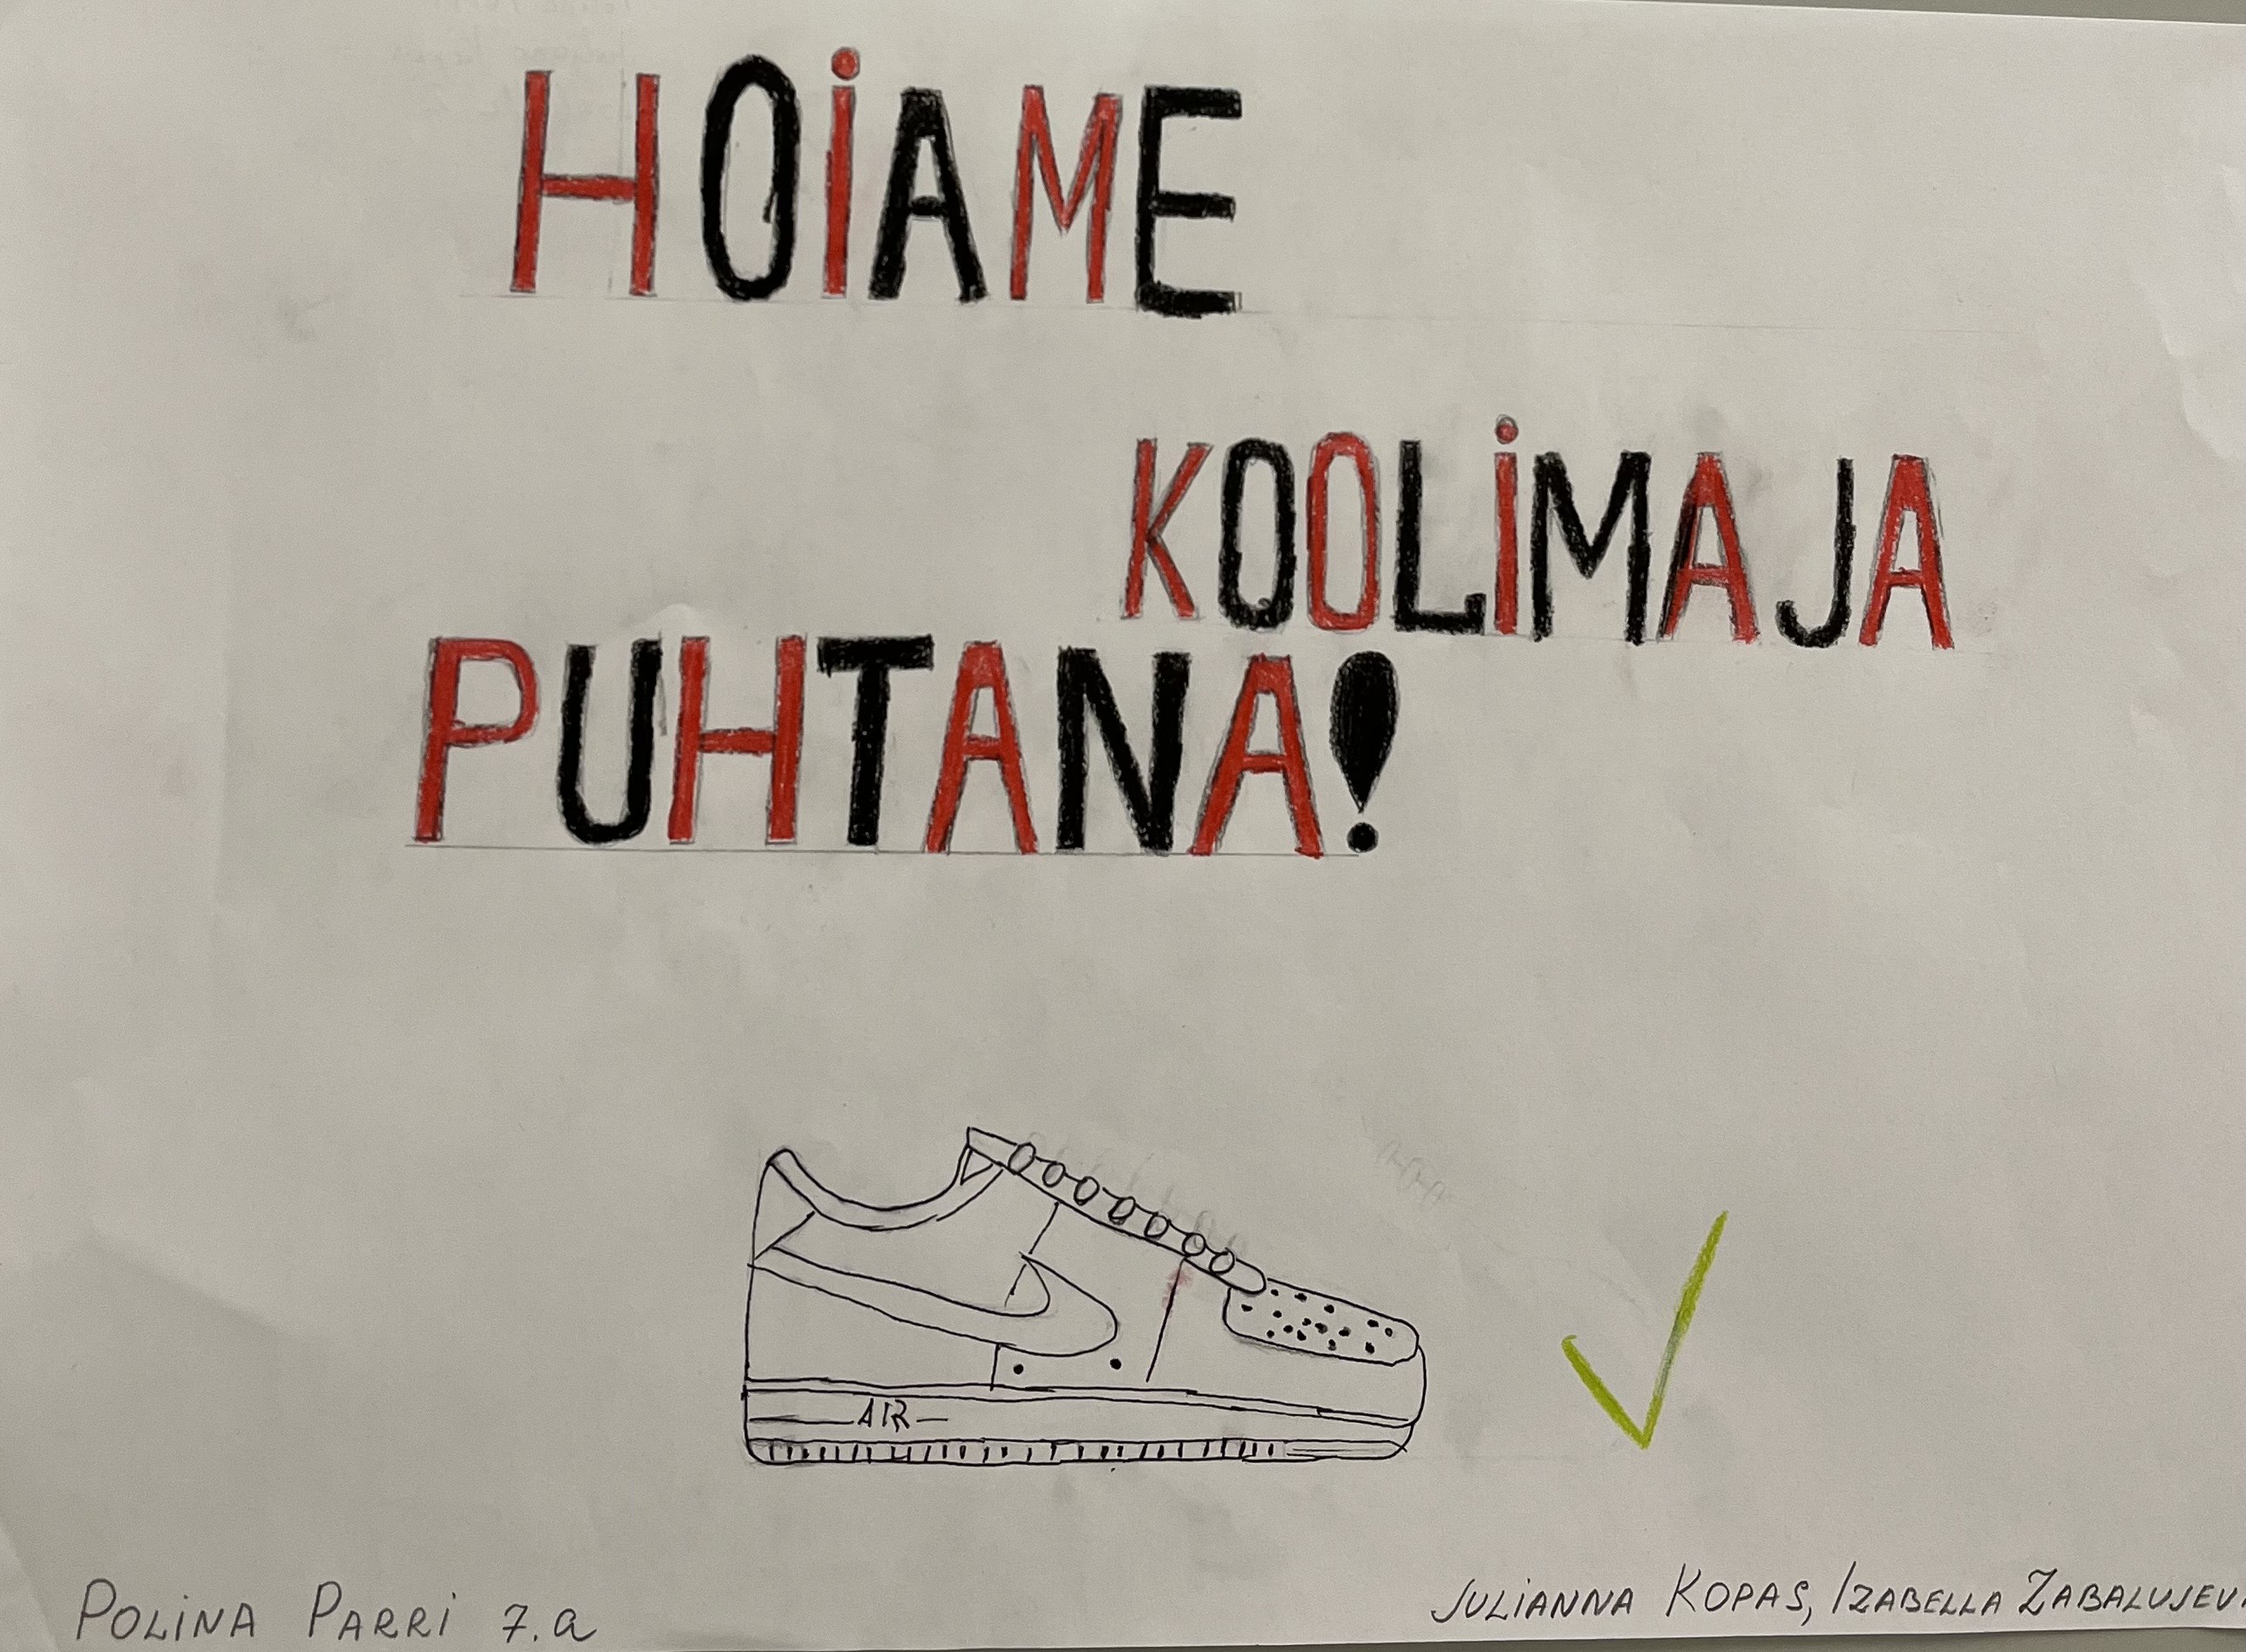 HOiAME
KOOLiMAJA
PUHTANA!
AIR
POLiNA PARRi 7.a
JULiANNA KOPAS, IZABELLA